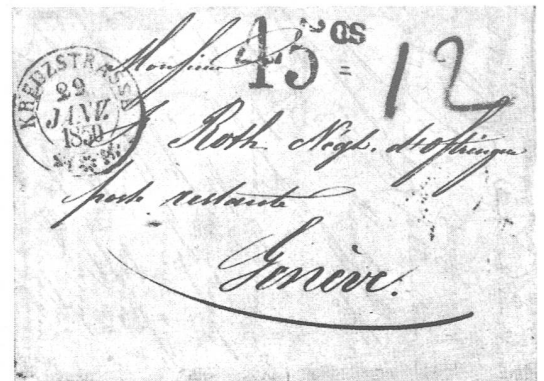 KREUZSTRASSE
29
JANV
1850
45 cs
= 12
Monsieur
J. Roth Négt. d'
poste restante
Genève.